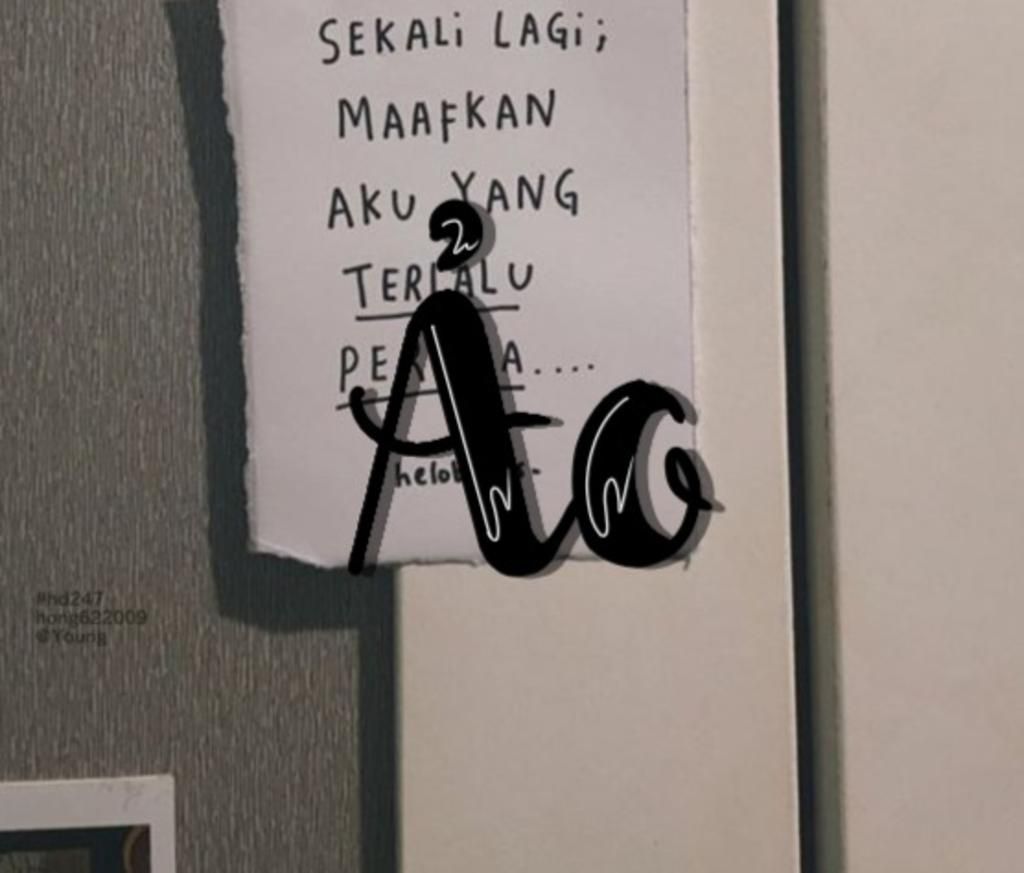 SEKALi LAGi;
MAAFKAN
AKU YANG
TERLALU
Ảo
#hd247
hong622009
@Young